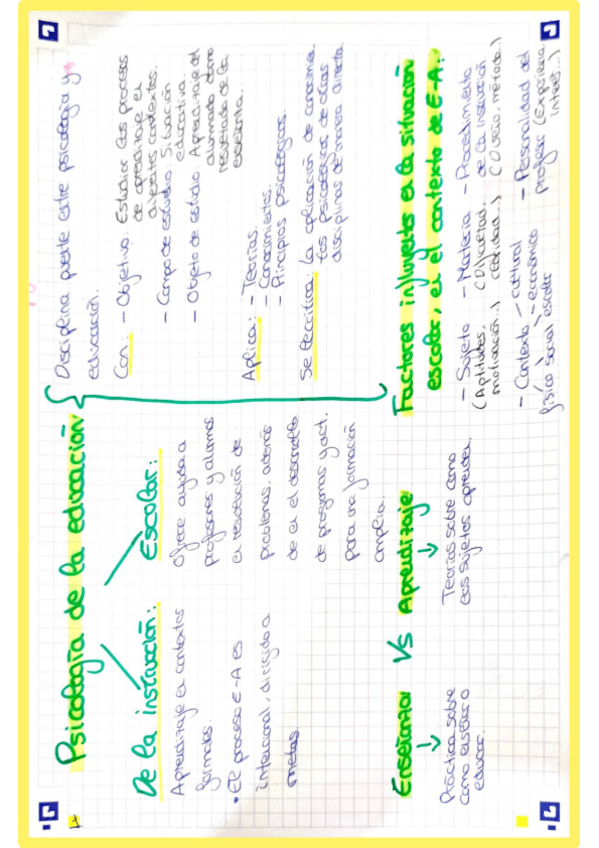 Psicología de la educación
De la instrucción:
Aprendizaje en contextos
formales.
• El proceso E-A es
intencional, dirigido a
metas.
Escolar:
Ofrece ayuda a
profesores y alumnos
en resolución de
problemas, además
de en el desarrollo
de programas y act.
para una formación
amplia.
Disciplina puente entre psicología y
educación.
Con: - Objetivo: Estudiar los procesos
de aprendizaje en
diferentes contextos.
- Campo de estudio: Situación
educativa.
- Objeto de estudio: Aprendizaje del
alumnado como
resultado de la
enseñanza.
Aplica: - Teorías.
- Conocimientos.
- Principios psicológicos.
Se critica: la aplicación de conocimien
tos psicológicos de otras
disciplinas de manera directa.
Enseñanza Vs Aprendizaje
Práctica sobre
como enseñar o
educar.
Teorías sobre como
los sujetos aprenden.
Factores influyentes en la situación
escolar, en el contexto de E-A:
- Sujeto - Materia - Procedimiento
(Aptitudes, de la instrucción
motivación..) cantidad..) método..)
- Contexto - cultural - Personalidad del
- económico profesor (Experiencia
físico social escolar interés...)